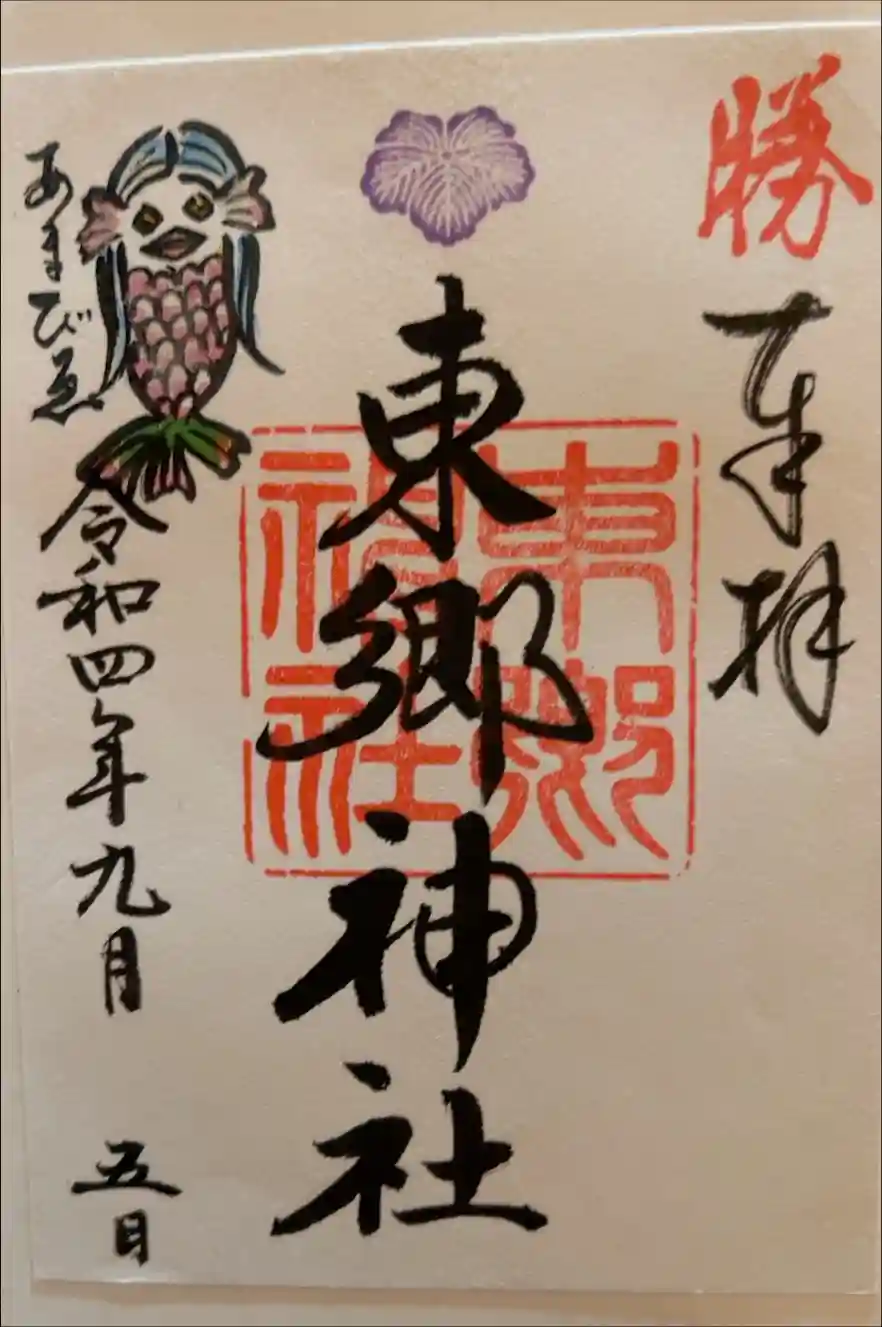 勝
奉拝
東郷神社
東郷神社
あまびゑ
令和四年九月 五日